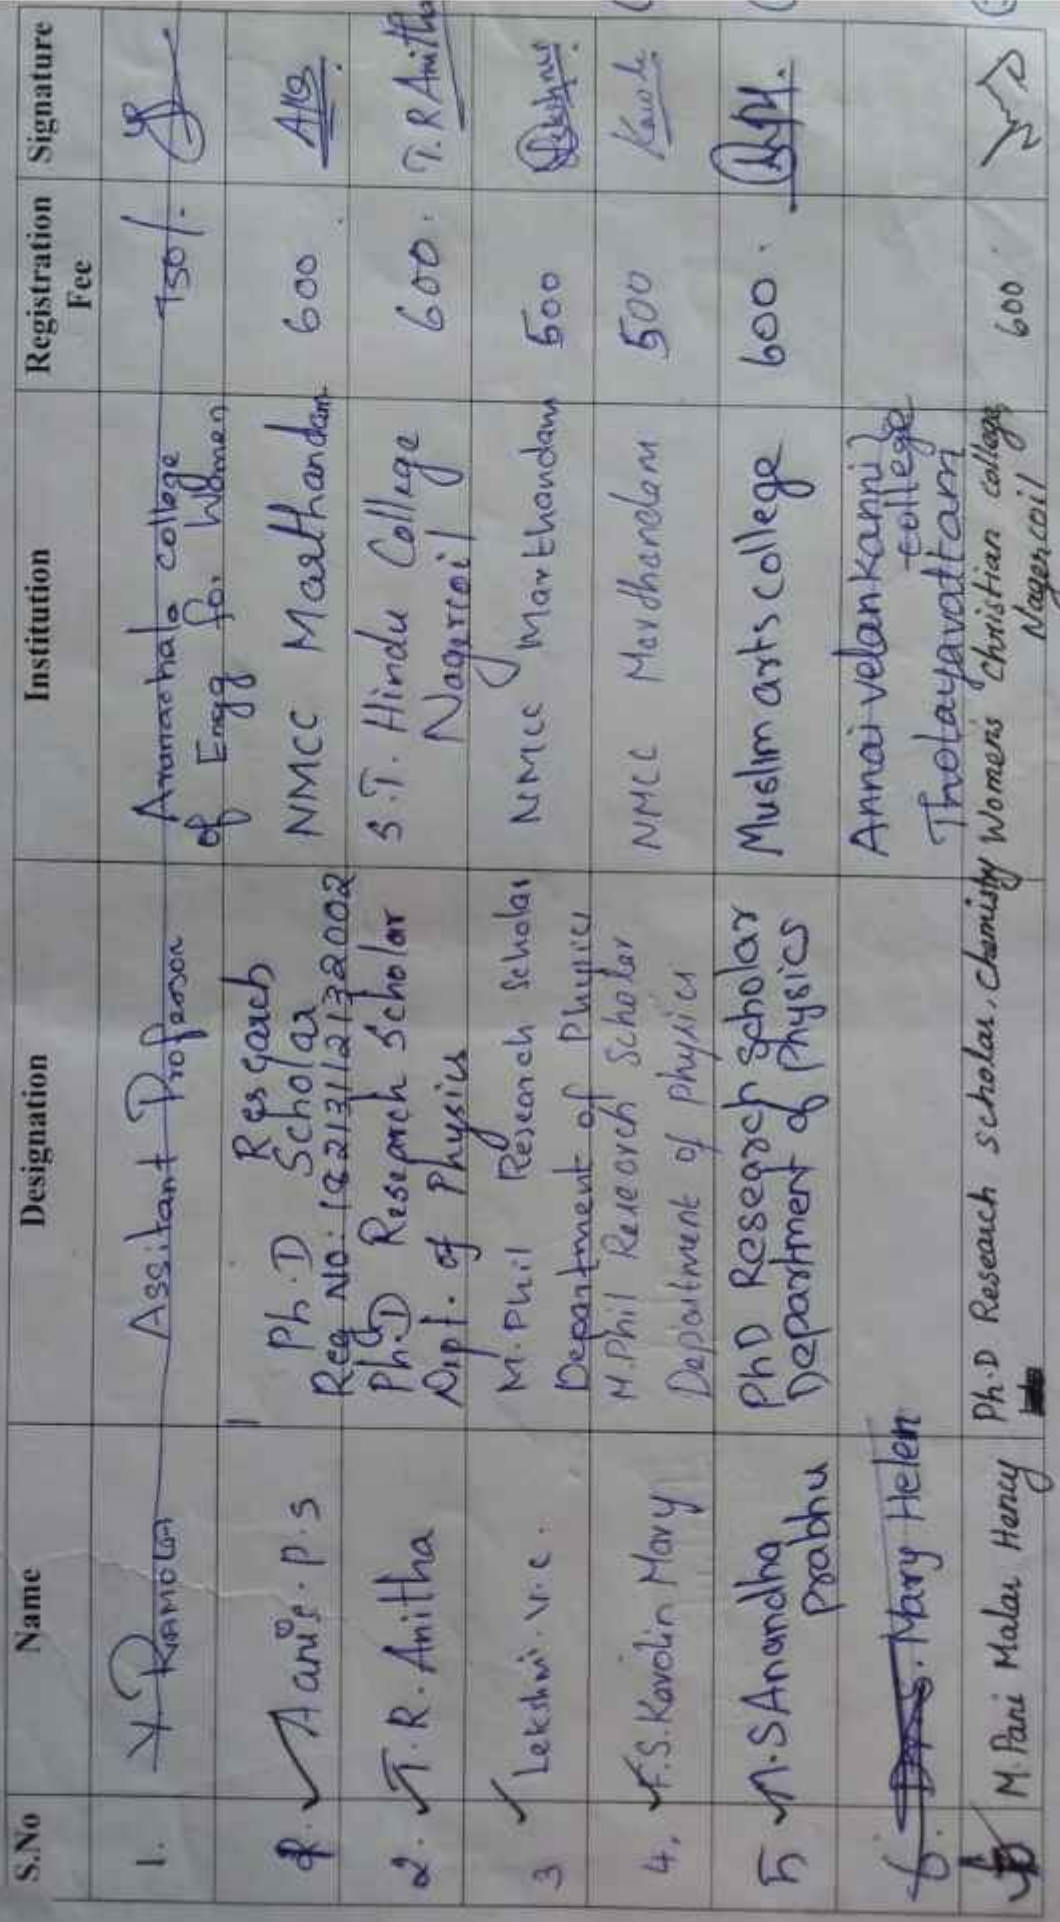 S.No Name Designation Institution Registration Fee Signature
1. Assitant Professor Arunachala college of Engg for Women 750/-
Aanie.P.S Ph.D Research Scholar Reg No: 18213112132002 NMCC Marthandam 600
2. T.R.Anitha Ph.D Research Scholar Dept. of Physics S.T. Hindu College Nagercoil 600. T.R Anitha
3 Lekshmi.V.C. M.Phil Research Scholar Department of Physics NMCC Marthandam 500 Lekshmi
4. F.S.Karolin Mary M.Phil Research Scholar Department of physics NMCC Mardhandam 500
5 Anandha Prabhu PhD Research Scholar Department of Physics Muslim arts college 600.
6. Mary Helen Annai velankanni college Tholayavattam
M.Pani Malar Hency Ph.D Research scholar, Chemistry Women's Christian college, Nagercoil 600